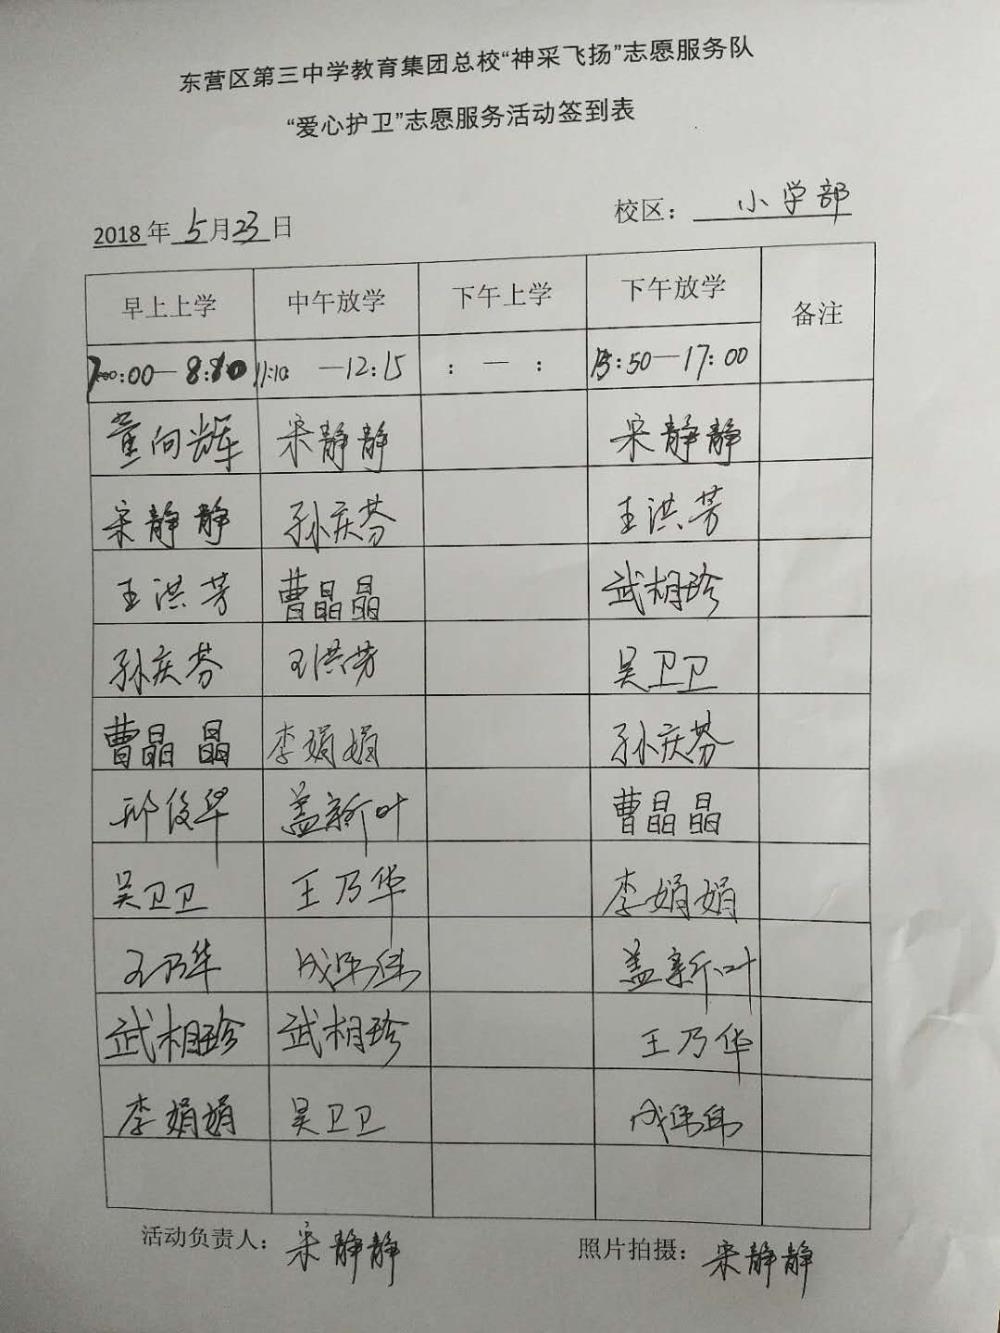 东营区第三中学教育集团总校“神采飞扬”志愿服务队
“爱心护卫”志愿服务活动签到表
2018年5月23日 校区：小学部
早上上学 中午放学 下午上学 下午放学 备注
:00—8:10 11:10—12:15 : — : 15:50—17:00
董向辉 宋静静 宋静静
宋静静 孙庆芬 王洪芳
王洪芳 曹晶晶 武相珍
孙庆芬 王洪芳 吴卫卫
曹晶晶 李娟娟 孙庆芬
邢俊华 盖新叶 曹晶晶
吴卫卫 王乃华 李娟娟
王乃华 成伟伟 盖新叶
武相珍 武相珍 王乃华
李娟娟 吴卫卫 成伟伟
活动负责人：宋静静 照片拍摄：宋静静